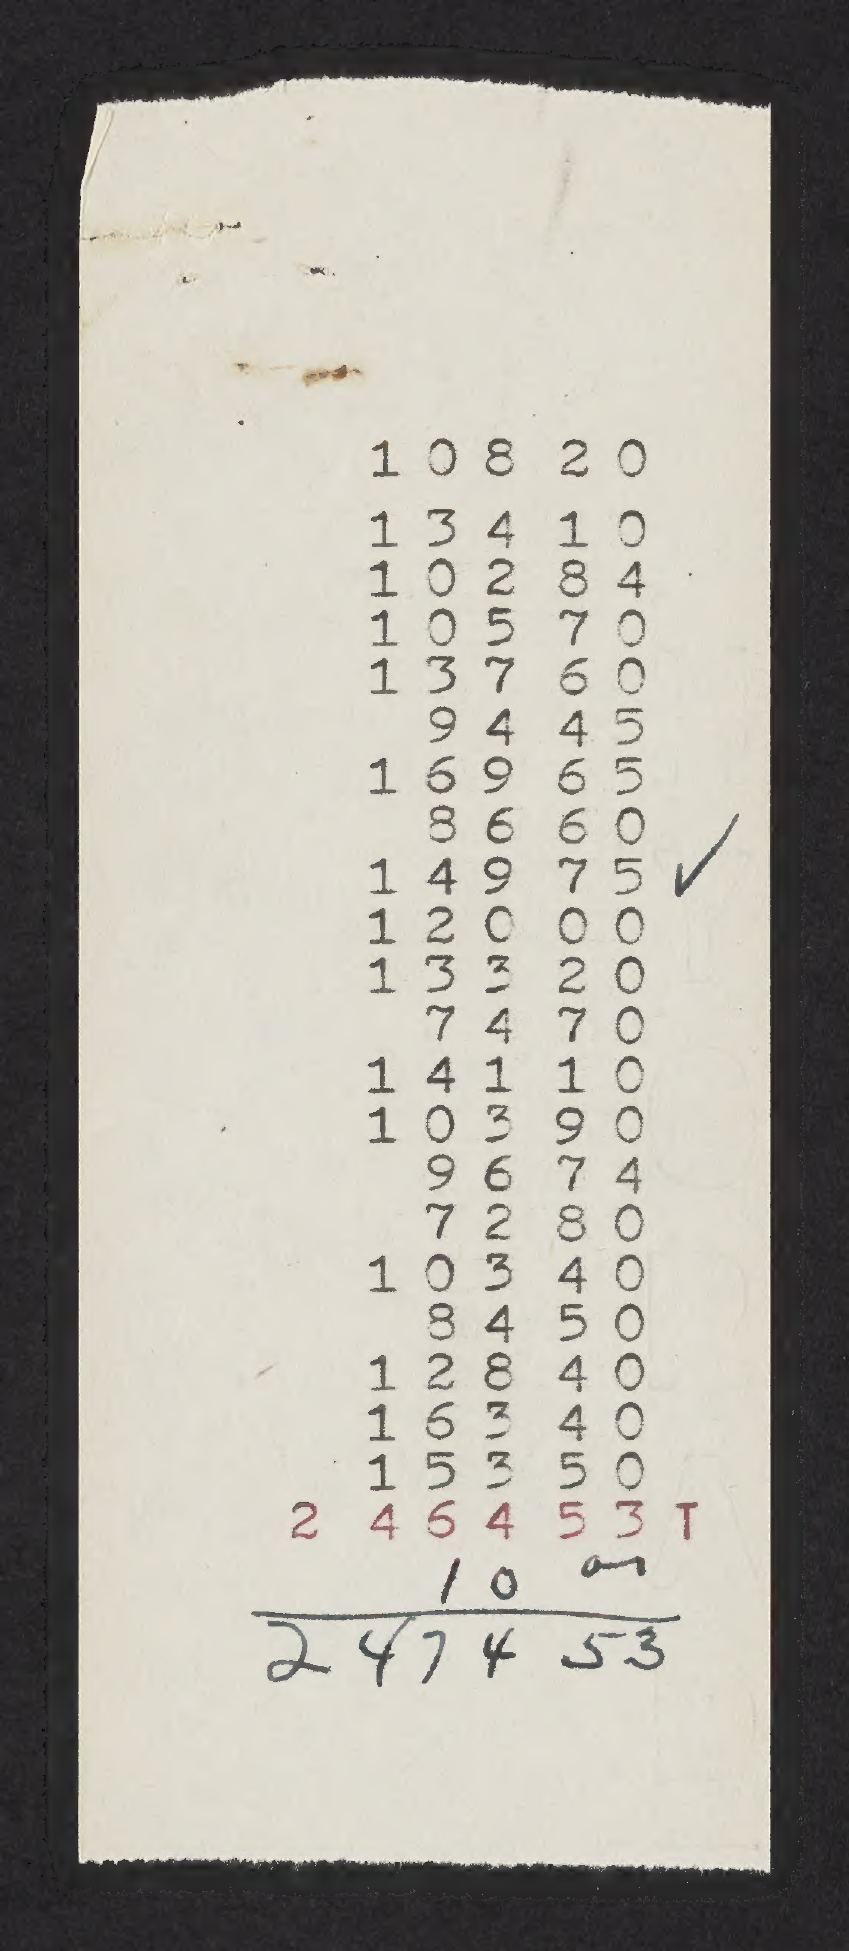 108 20
134 10
102 84
105 70
137 60
94 45
169 65
86 60
149 75 ✓
120 00
133 20
74 70
141 10
103 90
96 74
72 80
103 40
84 50
128 40
163 40
153 50
2 464 53 T
10
2 474 53